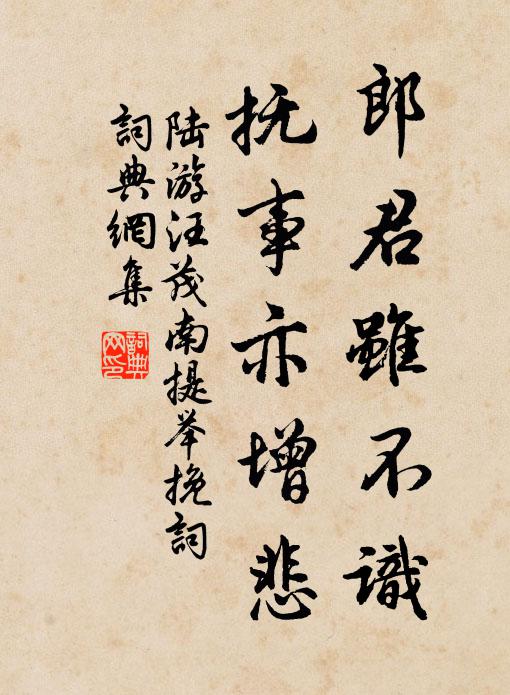 郎君雖不識
抚事亦增悲
陆游汪茂南提举挽詞
詞典網集
詞典网印